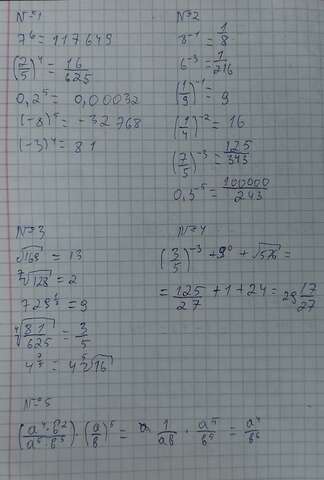 N=1
7⁶ = 117649
(2/5)⁴ = 16/625
0,2⁵ = 0,00032
(-8)⁵ = -32768
(-3)⁴ = 81
N=2
8⁻¹ = 1/8
6⁻³ = 1/216
(1/9)⁻¹ = 9
(1/4)⁻² = 16
(7/5)⁻³ = 125/343
0,3⁻⁵ = 100000/243
N=3
√169 = 13
⁷√128 = 2
= 9
⁴√(81/625) = 3/5
N=4
(3/5)⁻³ + 9⁰ + √576 =
= 125/27 + 1 + 24 = 29 17/27
N=5
(a⁴·b²/a⁵·b³)·(a/b)⁵ = 1/ab · a⁵/b⁵ = a⁴/b⁶